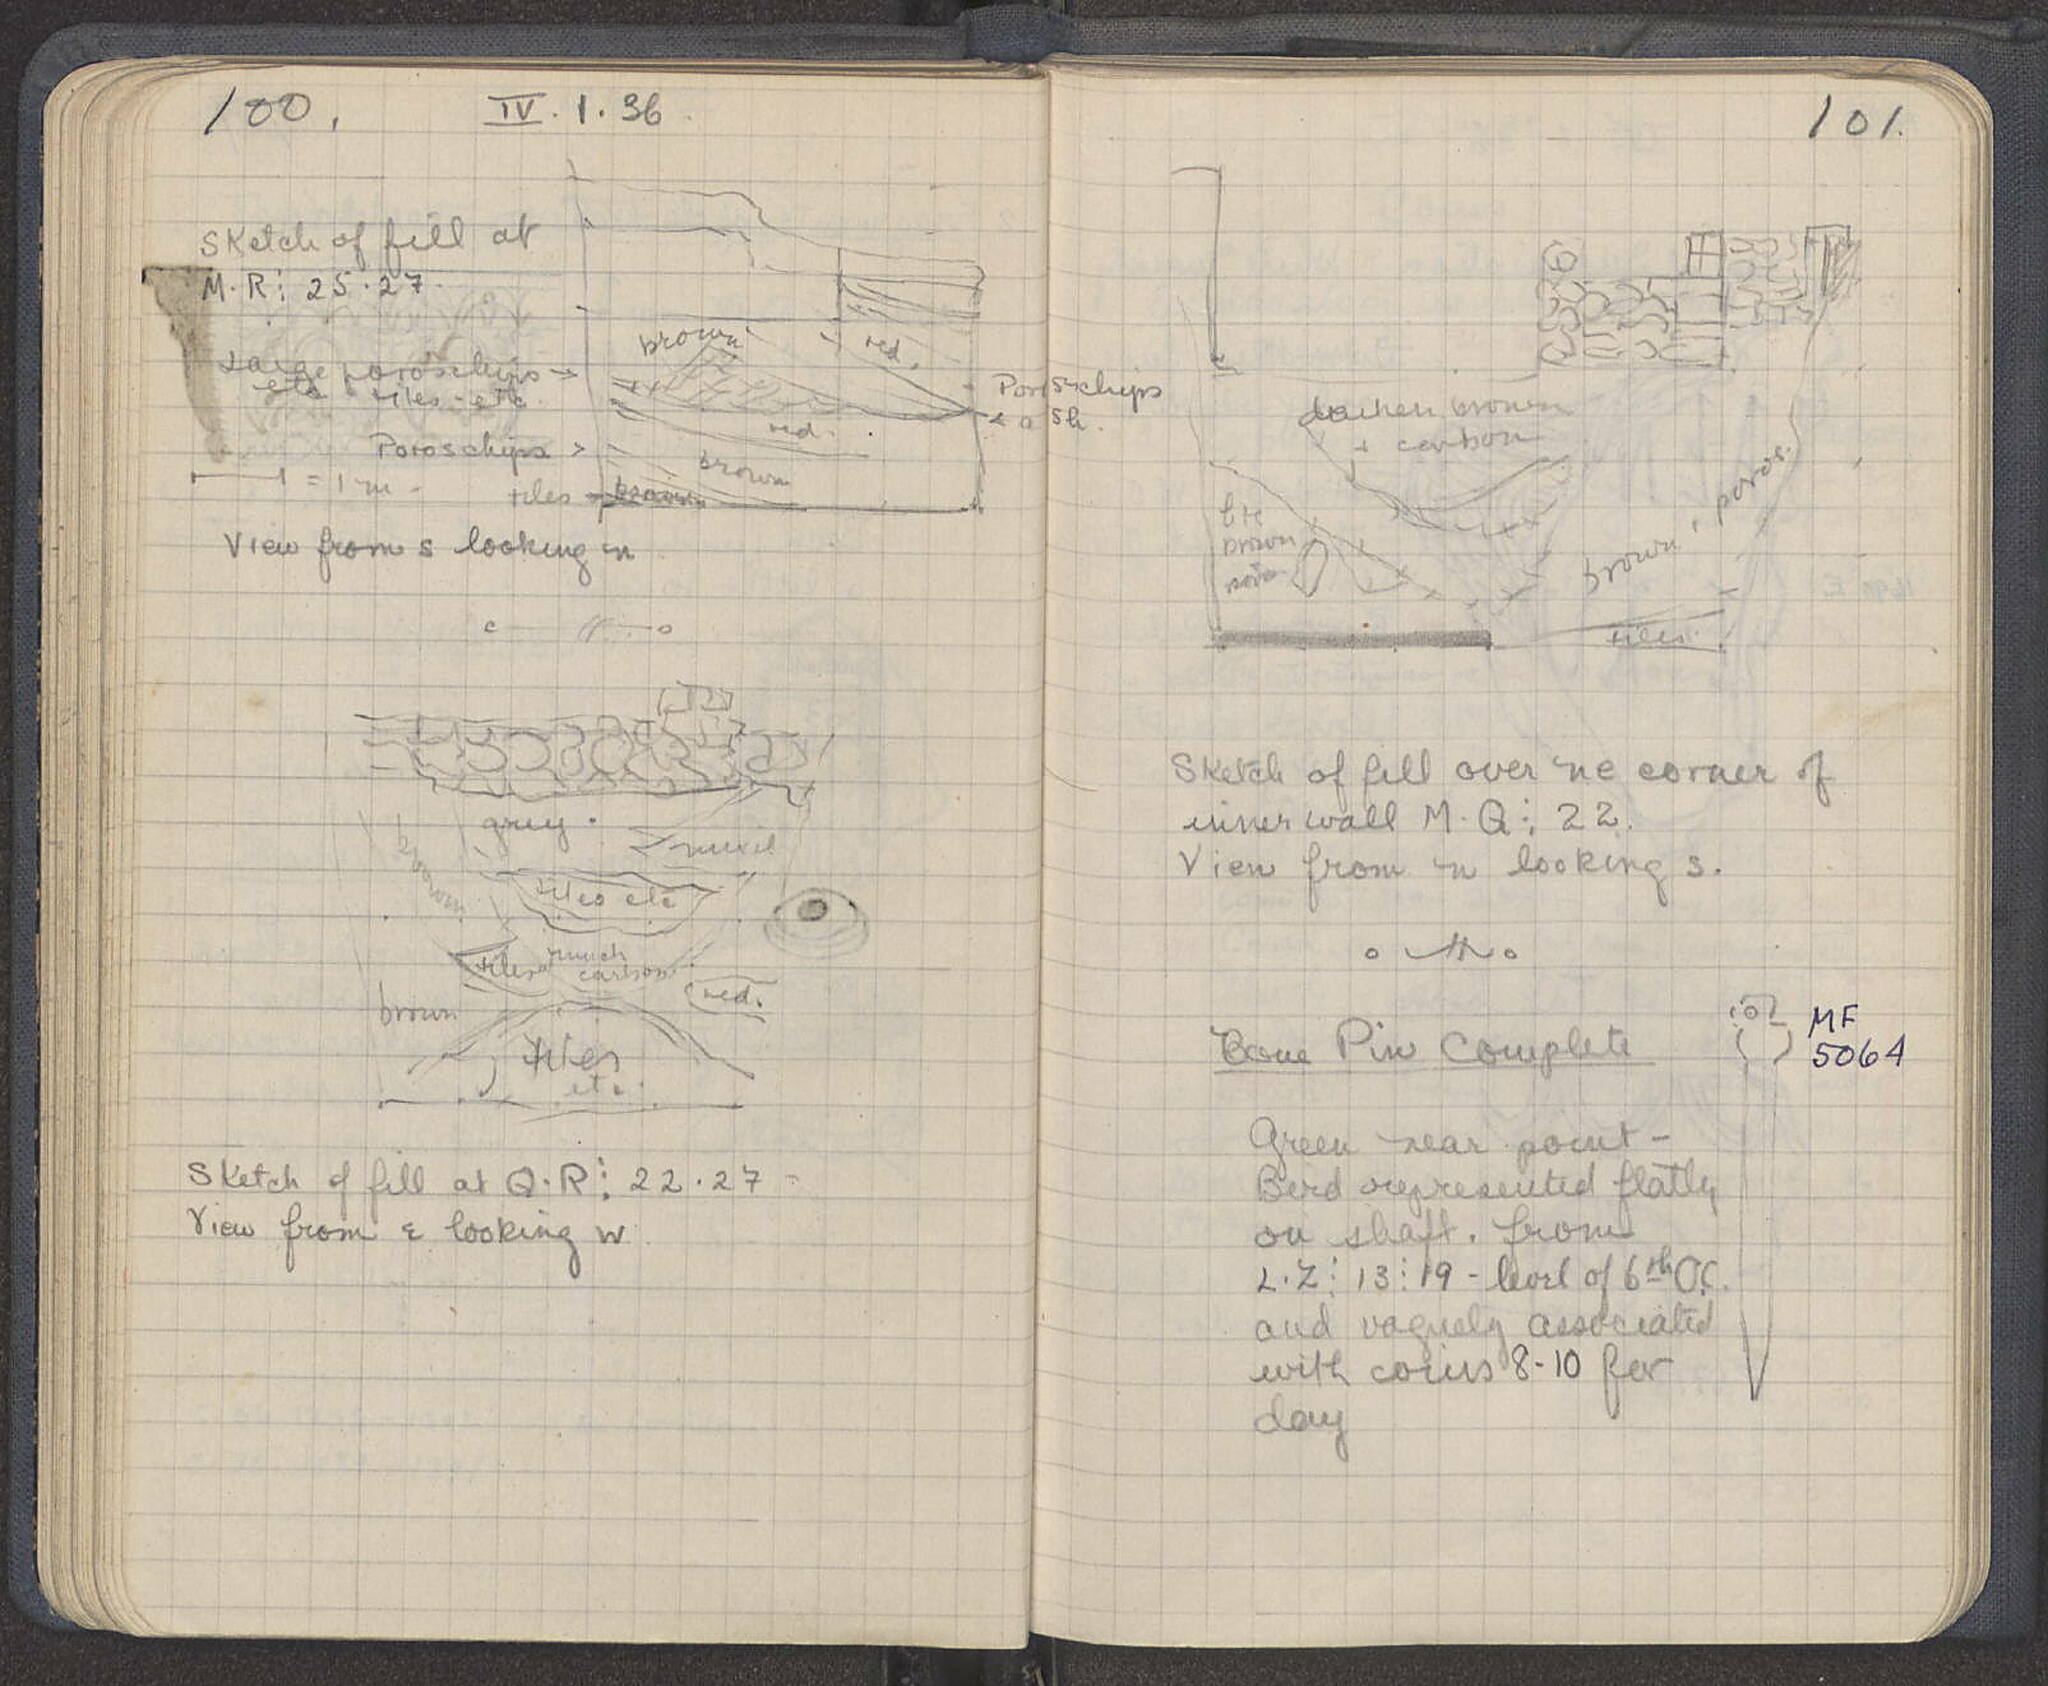 100.
IV. 1. 36
Sketch of fill at
M.R⋮ 25.27.
Large poroschips →
etc tiles - etc.
brown
red.
Poroschips
< ash.
red.
Poroschips >
brown
= 1 m -
tiles
brown
View from s looking n
grey.
brown
tiles etc
tiles
much
carbon
red.
brown
tiles
etc.
Sketch of fill at Q.R⋮ 22.27 -
View from ε looking w.
101.
darker brown
+ carbon
brown
brown, poros.
tiles.
Sketch of fill over ne corner of
inner wall M.Q⋮ 22.
View from n looking s.
Bone Pin Complete
MF
5064
Green near point -
Bird represented flatly
on shaft. from
L.Z⋮ 13⋮19 - level of 6th CC.
and vaguely associated
with coins 8-10 for
day